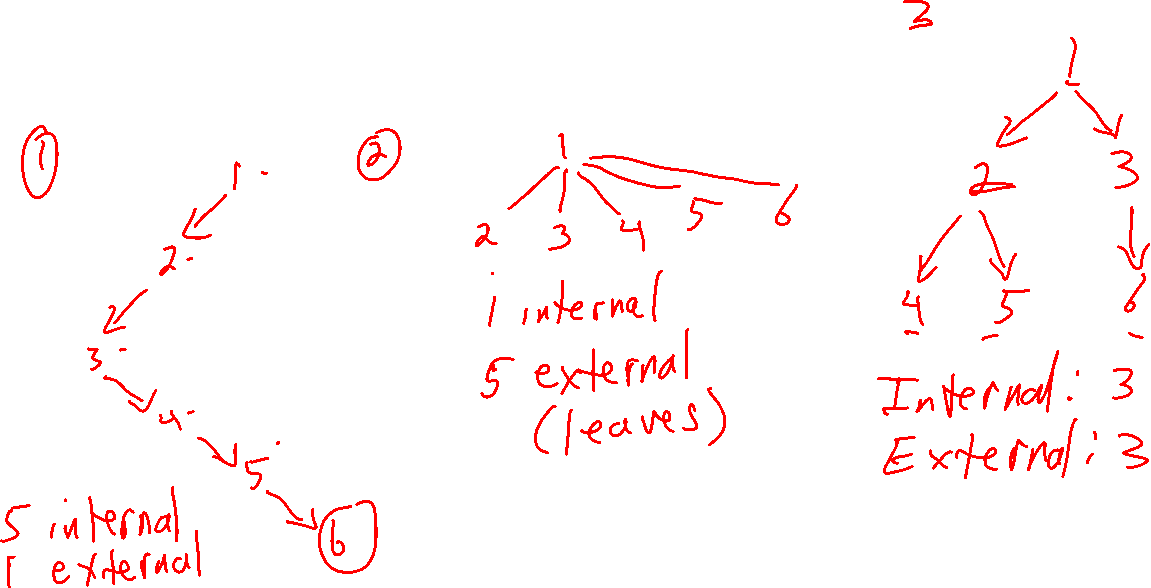 1
1
2
3
4
5
6
5 internal
1 external
2
1
2 3 4 5 6
1 internal
5 external
(leaves)
3
1
2 3
4 5 6
Internal: 3
External: 3